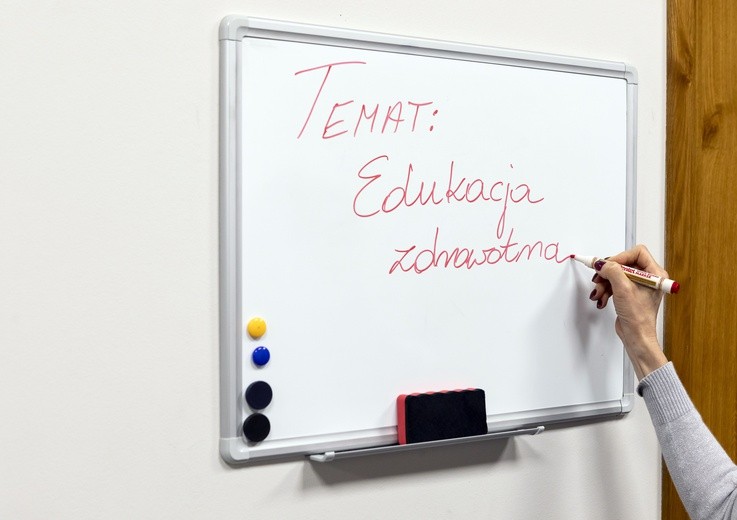 TEMAT:
Edukacja
zdrowotna